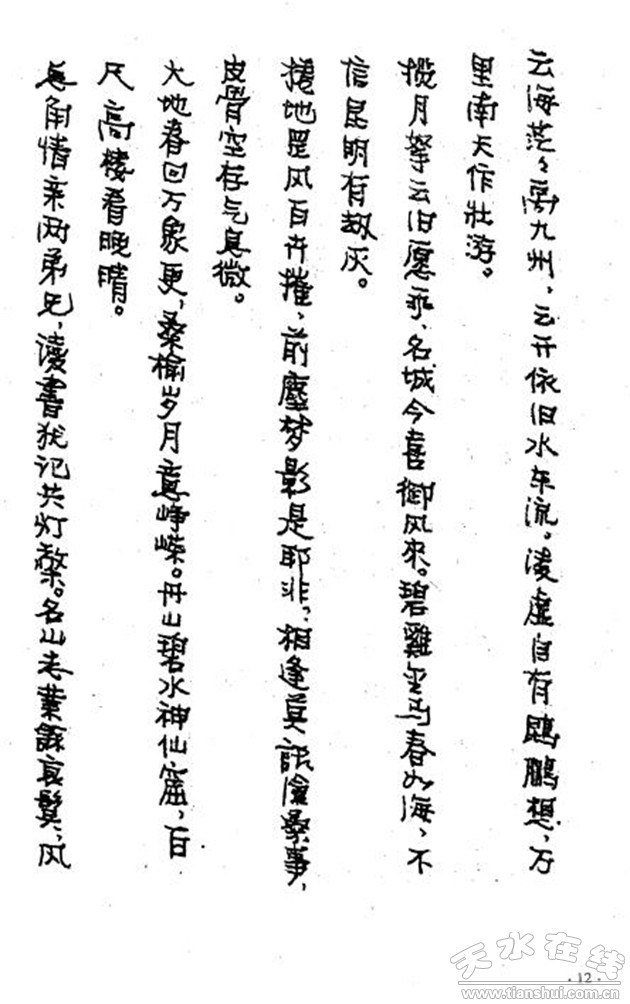 云海茫々离九州，云开依旧水车流。凌虚自有鹍鹏想，万
里南天作壮游。
揽月拏云旧愿乖，名城今喜御风来。碧雞金马春如海，不
信昆明有劫灰。
捲地罡风百卉摧，前塵梦影是耶非，相逢莫話滄桑事，
皮骨空存气息微。
大地春回万象更，桑榆岁月意峥嵘。丹山碧水神仙窟，百
尺高楼看晚晴。
总角情亲两弟兄，读書犹记共灯檠。名山志業餘衰鬓，风
天水在线
www.tianshui.com.cn
·12·